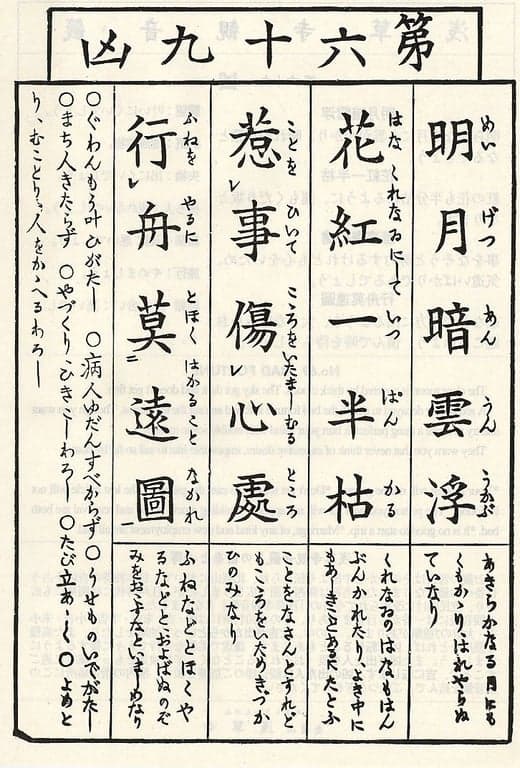 第六十九凶
めい げつ あん うん うかぶ
明月暗雲浮
あきらかなる月にも
くもかゝりはれやらぬ
ていなり
はな くれなゐにして いつ ぱん かる
花紅一半枯
くれなゐのはなもはん
ぶんかれたりよき中に
もあしきことあるにたとふ
ことを ひいて こころをいたましむる ところ
惹レ事傷レ心處
ことをなさんとすれど
もこころをいためきづか
ひのみなり
ふねを やるに とほく はかること なかれ
行レ舟莫二遠圖
ふねなどとほくや
るなどとおよばぬのぞ
みをおこすなといましめなり
○ぐわんもう叶ひがたし ○病人ゆだんすべからず ○うせものいでがたし
○まち人きたらず ○やづくりひきこしわろし ○たび立あしく ○よめと
り、むことり、人をかゝへるわろし